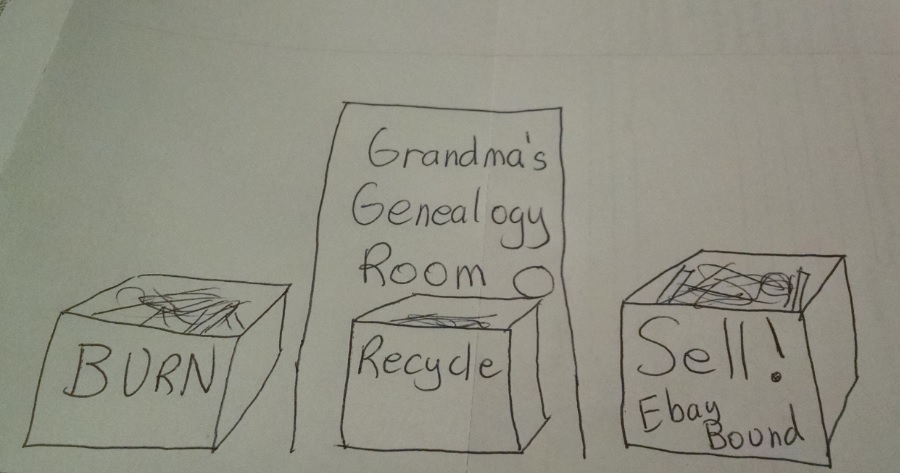 Grandma's
Genealogy
Room
BURN
Recycle
Sell!
Ebay
Bound